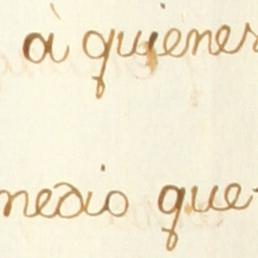 à quienes
medio que-